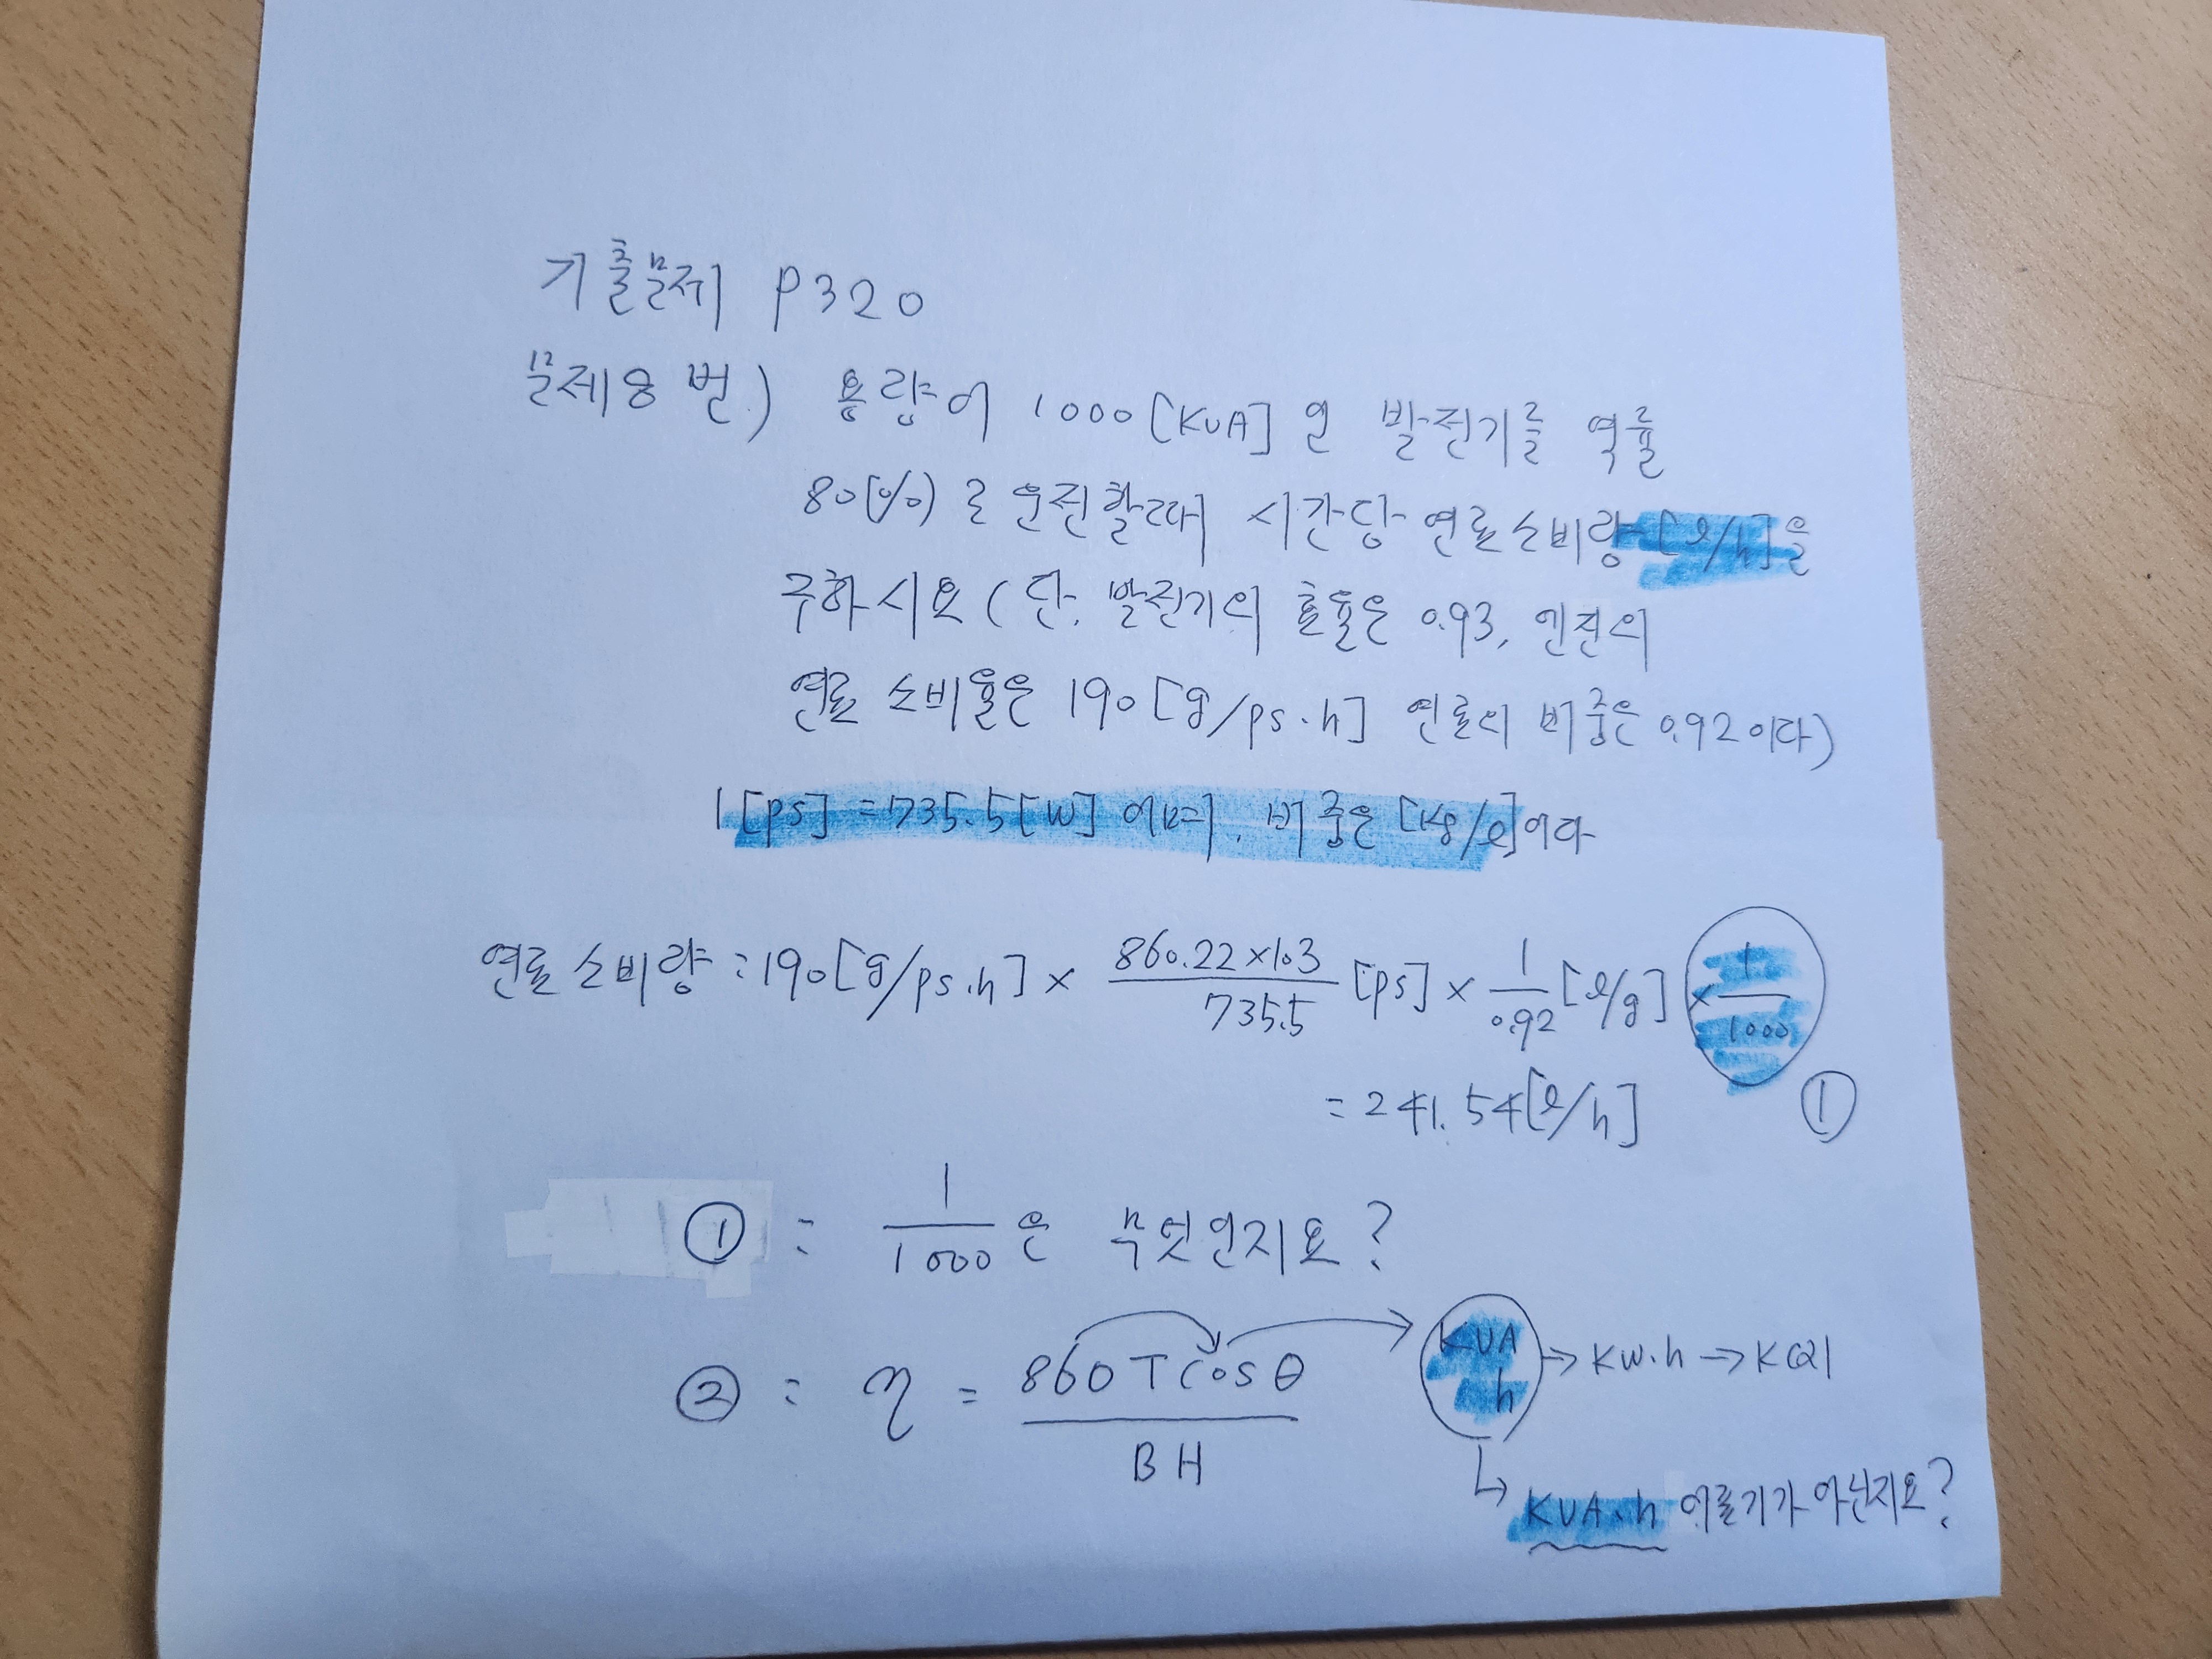 기출문제 P320
문제8번) 용량이 1000[KVA]인 발전기를 역률
80(%)로 운전할때 시간당 연료소비량[ℓ/h]을
구하시요(단, 발전기의 효율은 0.93, 엔진의
연료 소비율은 190[g/ps·h] 연료의 비중은 0.92이다)
1[ps]=735.5[W]이며, 비중은[Kg/ℓ]이다
연료소비량:190[g/ps.h]×\frac{860.22×10^3}{735.5}[ps]×\frac{1}{0.92}[ℓ/g]×\frac{1}{1000} ①
=241.54[ℓ/h]
①: \frac{1}{1000}은 무엇인지요?
②: η=\frac{860Tcosθ}{BH} → KVA h → KW.h → K
↳ KVA.h 이룰기가 아닌지요?